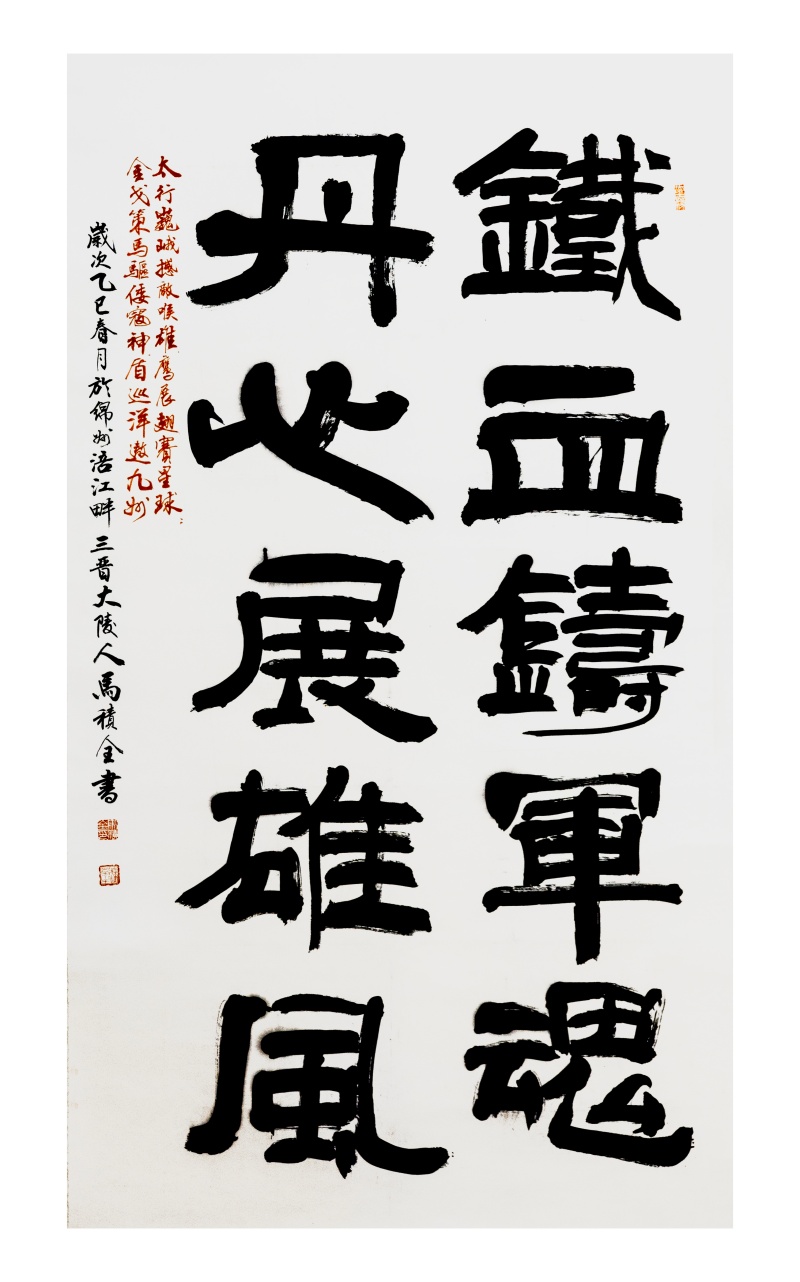 鐵血鑄軍魂
丹心展雄風
太行巍峨撼敵喉雄鷹展翅賽星球
金戈策馬驅倭寇神盾巡洋遨九州
歲次乙巳春月於綿州涪江畔三晉大陵人馬積全書